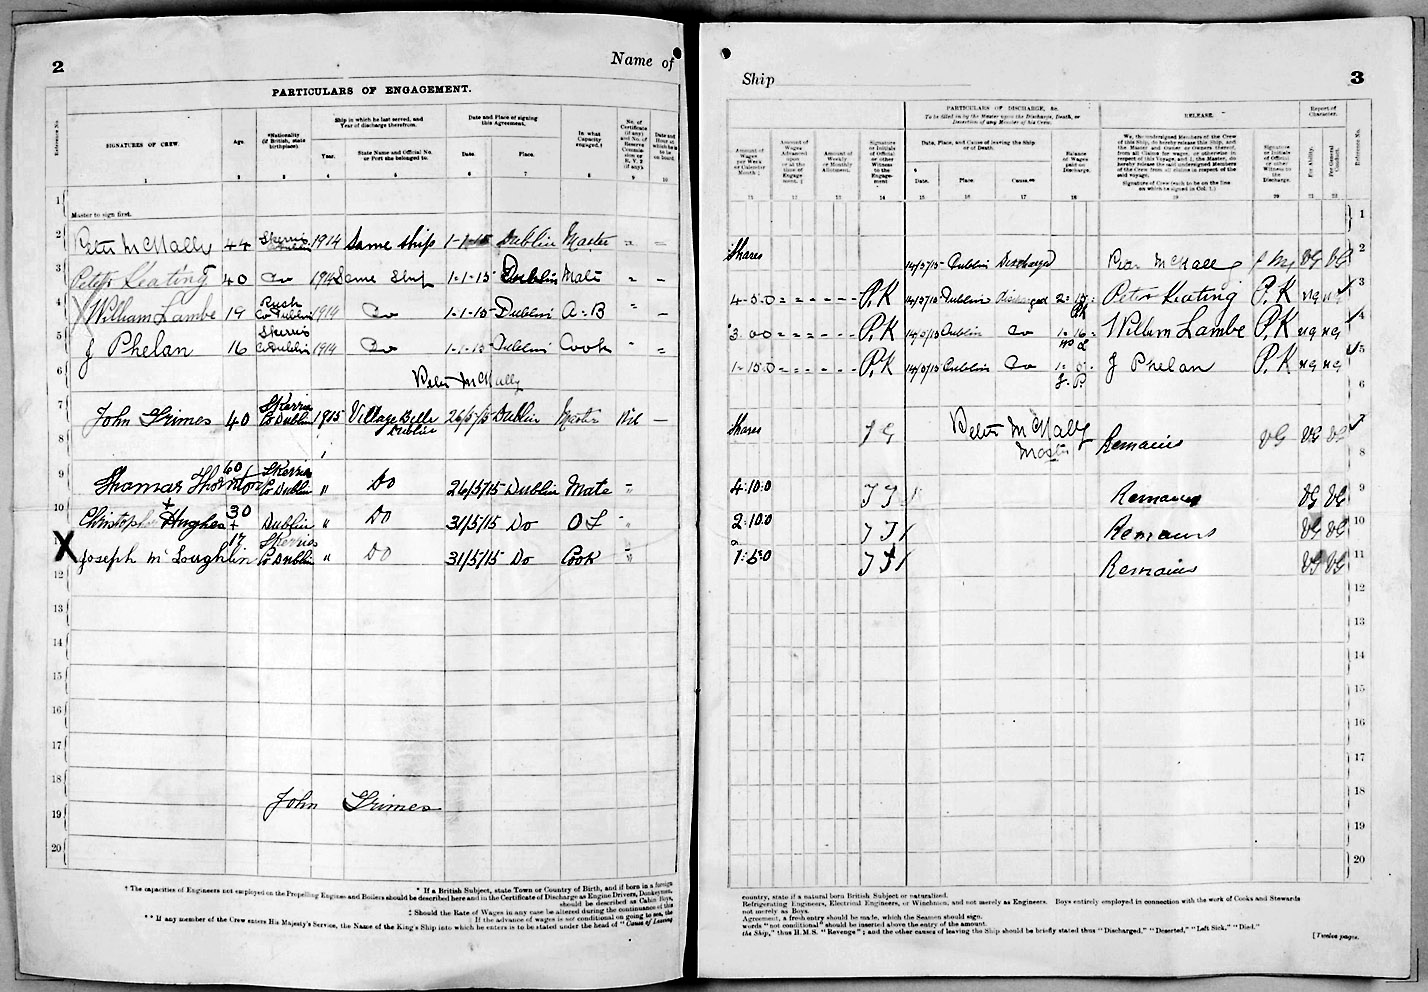 2
Name of
PARTICULARS OF ENGAGEMENT.
Reference No.
SIGNATURES OF CREW.
Age.
*Nationality (if British, state birthplace).
Ship in which he last served, and Year of discharge therefrom.
Year.
State Name and Official No. or Port she belonged to.
Date and Place of signing this Agreement.
Date.
Place.
In what Capacity engaged.†
No. of Certificate (if any) and No. of Reserve Commission or R. V. 2 (if any)
Date and Hour at which he is to be on board.
1 2 3 4 5 6 7 8 9 10
1 Master to sign first.
2 Peter McNally 44 Skerries Co Dublin 1914 Same Ship 1-1-15 Dublin Master " –
3 Peter Keating 40 Do 1914 Same Ship 1-1-15 Dublin Mate " –
4 William Lambe 19 Rush Co Dublin 1914 Do 1-1-15 Dublin A-B " –
5 J Phelan 16 Skerries Co Dublin 1914 Do 1-1-15 Dublin Cook " =
6 Peter McNally
7 John Grimes 40 Skerries Co Dublin 1915 Village Belle Dublin 26/5/15 Dublin Master Nil –
8
9 Thomas Thornton 60 Skerries Co Dublin " Do 26/5/15 Dublin Mate "
10 Christopher + Hughes 30 + Dublin " Do 31/5/15 Do O S "
11 X Joseph Mc Loughlin 17 Skerries Co Dublin " Do 31/5/15 Do Cook "
12
13
14
15
16
17
18
19 John Grimes
20
† The capacities of Engineers not employed on the Propelling Engines and Boilers should be described here and in the Certificate of Discharge as Engine Drivers, Donkeymen,
* If a British Subject, state Town or Country of Birth, and if born in a foreign
should be described as Cabin Boys,
‡ Should the Rate of Wages in any case be altered during the continuance of this
If the advance of wages is not conditional on going to sea, the
** If any member of the Crew enters His Majesty's Service, the Name of the King's Ship into which he enters is to be stated under the head of "Cause of Leaving
Ship
3
Amount of Wages per Week or Calendar Month ‡
Amount of Wages Advanced upon or at the time of Engagement. ‡
Amount of Weekly or Monthly Allotment.
Signature or Initials of Official or other Witness to the Engagement
PARTICULARS OF DISCHARGE, &c.
To be filled in by the Master upon the Discharge, Death, or Desertion of any Member of his Crew.
Date, Place, and Cause of leaving the Ship or of Death.
Date.
Place.
Cause.**
Balance of Wages paid on Discharge.
RELEASE.
We, the undersigned Members of the Crew of this Ship, do hereby release this Ship, and the Master and Owner or Owners thereof, from all Claims for wages, or otherwise in respect of this Voyage; and I, the Master, do hereby release the said undersigned Members of the Crew from all claims in respect of the said voyage.
Signature of Crew (each to be on the line on which he signed in Col. 1.)
Signature or Initials of Official or other Witness to the Discharge.
Report of Character.
For Ability.
For General Conduct.
Reference No.
11 12 13 14 15 16 17 18 19 20 21 22
1
Shares 14/5/15 Dublin Discharged Peter McNally VG VG 2
4-5-0 P.K 14/5/15 Dublin discharged Peter Keating P.K VG VG 3
3-0-0 P.K 14/5/15 Dublin Do William Lambe P.K VG VG 4
1-15-0 P.K 14/5/15 Dublin Do J Phelan P.K VG VG 5
J. P 6
Shares J G Peter McNally Master Remains VG VG VG 7
8
4:10:0 Remains VG VG 9
2:10:0 Remains VG VG 10
1:5:0 Remains VG VG 11
12
13
14
15
16
17
18
19
20
country, state if a natural born British Subject or naturalized.
Refrigerating Engineers, Electrical Engineers, or Winchmen, and not merely as Engineers. Boys entirely employed in connection with the work of Cooks and Stewards
not merely as Boys.
Agreement, a fresh entry should be made, which the Seamen should sign.
words "not conditional" should be inserted above the entry of the amount.
the Ship," thus H.M.S. "Revenge"; and the other causes of leaving the Ship should be briefly stated thus "Discharged," "Deserted," "Left Sick," "Died."
[Twelve pages.